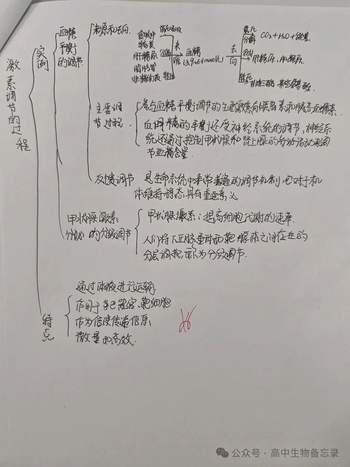 激素调节的过程
实例
血糖平衡的调节
来源和去向
食物中
糖类
肝糖原
脂肪等
非糖物质
消化吸收
分解
转化
来源
血糖
去向
氧化
分解
CO₂+H₂O+能量
合成
肝糖原、肌糖原
转化
主要调节过程
参与血糖平衡调节的主要激素有胰岛素和胰高血糖素。
血糖的平衡还受神经系统的调节，神经系
统还通过控制甲状腺和肾上腺的分泌活动来调
节血糖含量
反馈调节
是生命系统中非常普遍的调节机制，它对于机
体维持稳态具有重要意义
甲状腺激素分泌的分级调节
甲状腺激素：提高细胞代谢的速率
人们将下丘脑、垂体和靶腺体之间存在的
分层调控，称为分级调节
特点
通过体液进行运输
作用于靶器官、靶细胞
作为信使传递信息
微量和高效
公众号·高中生物备忘录